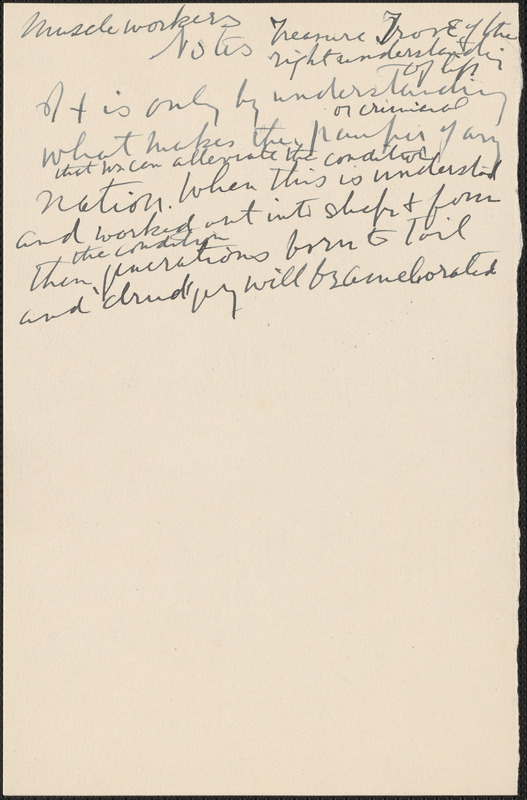 Muscle workers
Notes Treasure Trove of the
right understanding
of life
It is only by understanding
or criminal
what makes the pauper of any
that we can alleviate the condition
nation. When this is understood
and worked out into shape & form
the condition
then generations born to Toil
and drudgery will be ameliorated